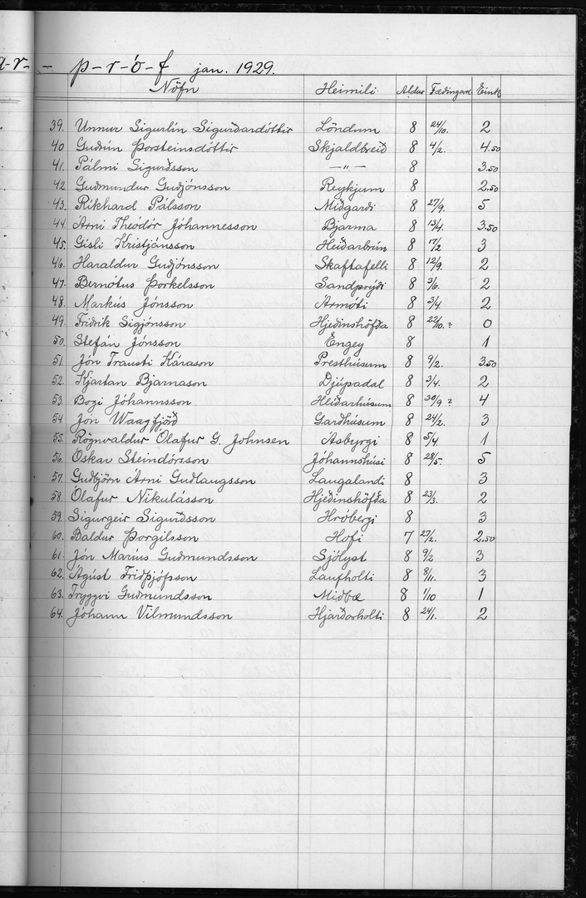 a-r- - p-r-ó-f jan. 1929.
Nöfn Heimili Aldur Fæðingard. Eink
39. Unnur Sigurlín Sigurðardóttir Löndum 8 24/10. 2
40 Guðrún Þorsteinsdóttir Skjaldbreið 8 4/2. 4.50
41. Pálmi Sigurðsson —〃— 8 3.50
42. Guðmundur Guðjónsson Reykjum 8 2.50
43. Rikhard Pálsson Miðgarði 8 27/9. 5
44. Árni Theódór Jóhannesson Bjarma 8 13/4. 3.50
45. Gísli Kristjánsson Heiðarbrún 8 17/2 3
46. Haraldur Guðjónsson Skaftafelli 8 12/9. 2
47. Bernótus Þorkelsson Sandprýði 8 2
48. Markús Jónsson Ármóti 8 3/4. 2
49. Friðrik Sigjónsson Hjeðinshöfða 8 22/10. ? 0
50. Stefán Jónsson Engey 8 1
51 Jón Trausti Kárason Presthúsum 8 9/2. 3.50
52. Kjartan Bjarnason Djúpadal 8 2
53. Bogi Jóhannsson Heiðarhúsum 8 30/9 ? 4
54 Jón Waagfjörð Garðhúsum 8 24/2. 3
55. Rögnvaldur Ólafur G. Johnsen Ásbyrgi 8 5/4 1
56. Óskar Steindórsson Jóhannshúsi 8 28/5. 5
57. Guðbjörn Árni Guðlaugsson Laugalandi 8 3
58. Ólafur Nikulásson Hjeðinshöfða 8 23/3. 2
59. Sigurgeir Sigurðsson Hróbergi 8 3
60. Baldur Þorgilsson Hofi 7 27/2. 2.50
61. Jón Maríus Guðmundsson Sjólyst 8 9/2 3
62. Ágúst Friðþjófsson Laufholti 8 8/11. 3
63. Tryggvi Guðmundsson Miðbæ 8 1/10 1
64. Jóhann Vilmundsson Hjarðarholti 8 24/1. 2